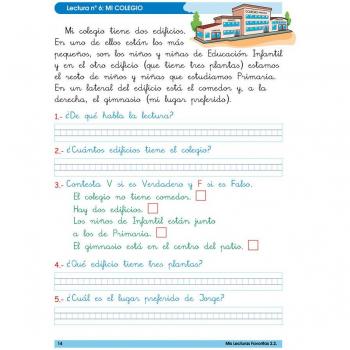 Lectura nº 6: MI COLEGIO
Mi colegio tiene dos edificios.
En uno de ellos están los más
pequeños, son los niños y niñas de Educación Infantil
y en el otro edificio (que tiene tres plantas) estamos
el resto de niños y niñas que estudiamos Primaria.
En un lateral del edificio está el comedor y, a la
derecha, el gimnasio (mi lugar preferido).
1.- ¿De qué habla la lectura?
2.- ¿Cuántos edificios tiene el colegio?
3.- Contesta V si es Verdadero y F si es Falso.
El colegio no tiene comedor.
Hay dos edificios.
Los niños de Infantil están junto
a los de Primaria.
El gimnasio está en el centro del patio.
4.- ¿Qué edificio tiene tres plantas?
5.- ¿Cuál es el lugar preferido de Jorge?
14
Mis Lecturas Favoritas 2.2.